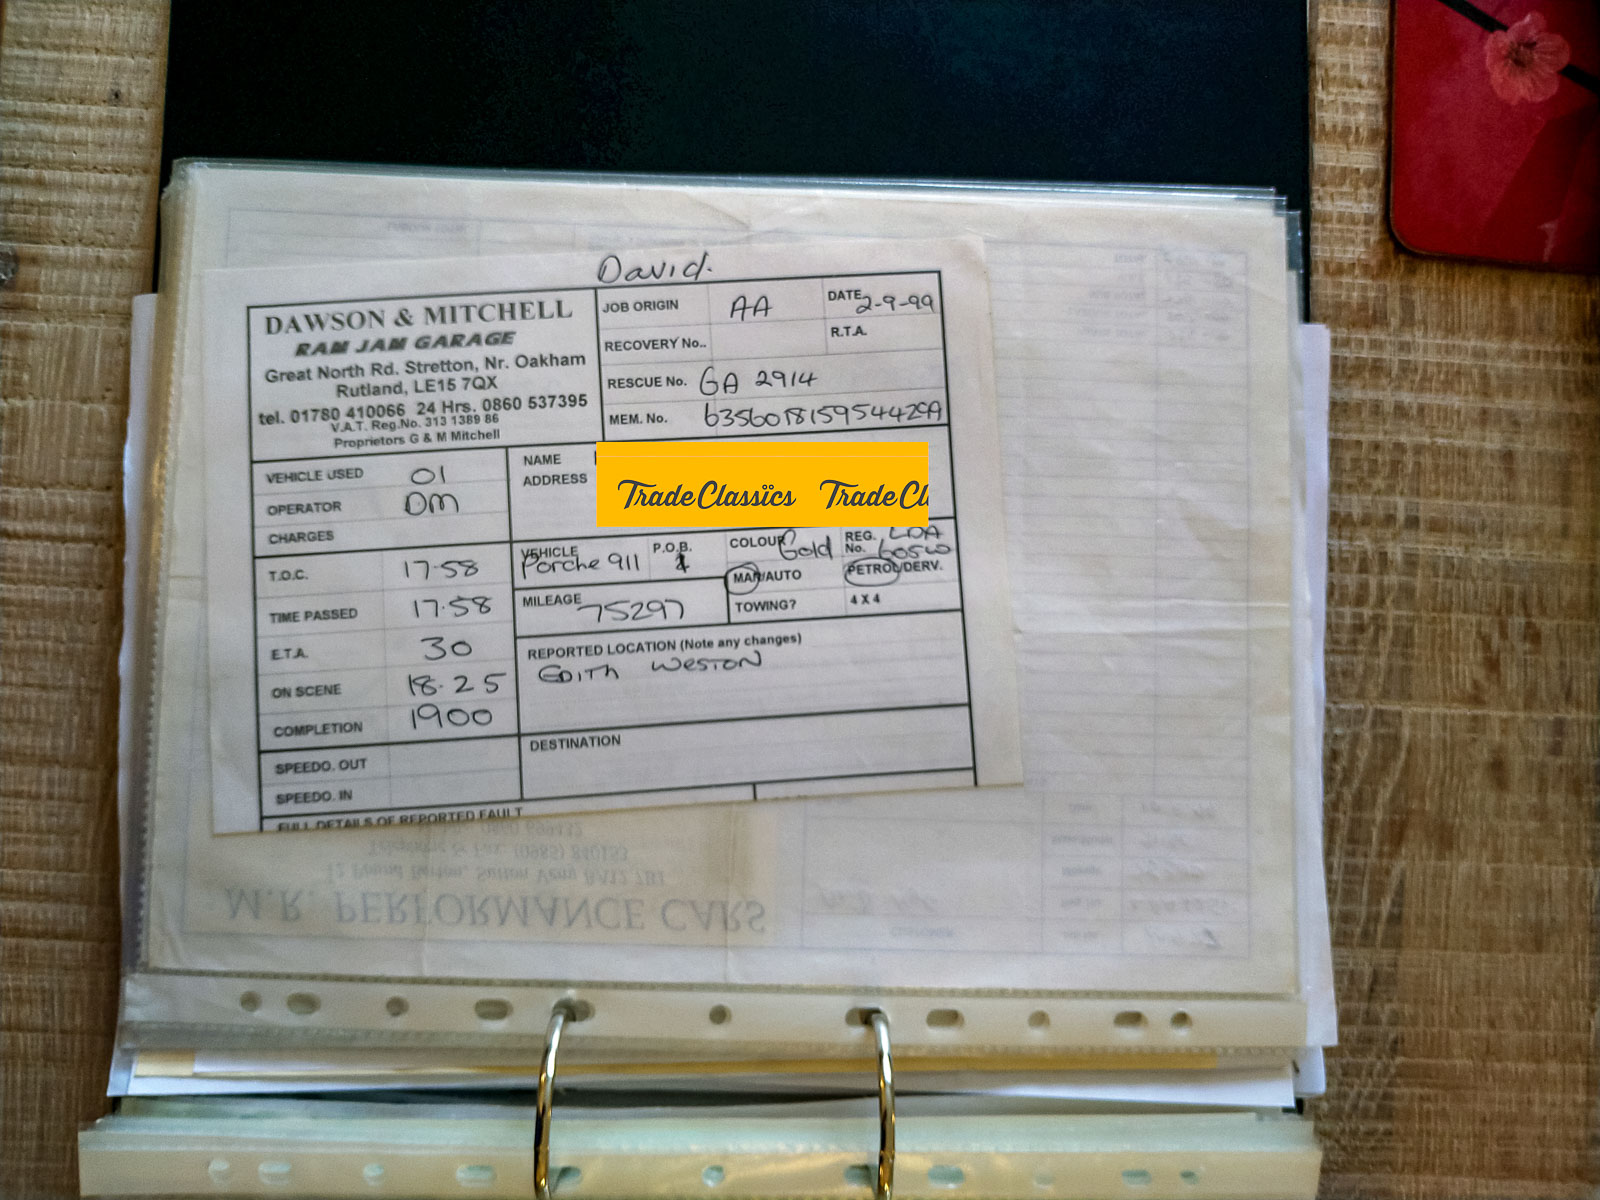 David.
DAWSON & MITCHELL
RAM JAM GARAGE
Great North Rd. Stretton, Nr. Oakham
Rutland, LE15 7QX
tel. 01780 410066 24 Hrs. 0860 537395
V.A.T. Reg.No. 313 1389 86
Proprietors G & M Mitchell
JOB ORIGIN AA DATE 2-9-99
RECOVERY No.. R.T.A.
RESCUE No. GA 2914
MEM. No.
VEHICLE USED 01
OPERATOR DM
CHARGES
NAME
ADDRESS
TradeClassics TradeCl
T.O.C. 17.58
TIME PASSED 17.58
E.T.A. 30
ON SCENE 18.25
COMPLETION 1900
SPEEDO. OUT
SPEEDO. IN
VEHICLE Porche 911 P.O.B. COLOUR Gold REG. No. LOA 605W
MAN/AUTO PETROL/DERV.
MILEAGE 75297 TOWING? 4 X 4
REPORTED LOCATION (Note any changes)
EDITH WESTON
DESTINATION
FULL DETAILS OF REPORTED FAULT
M.R. PERFORMANCE CARS